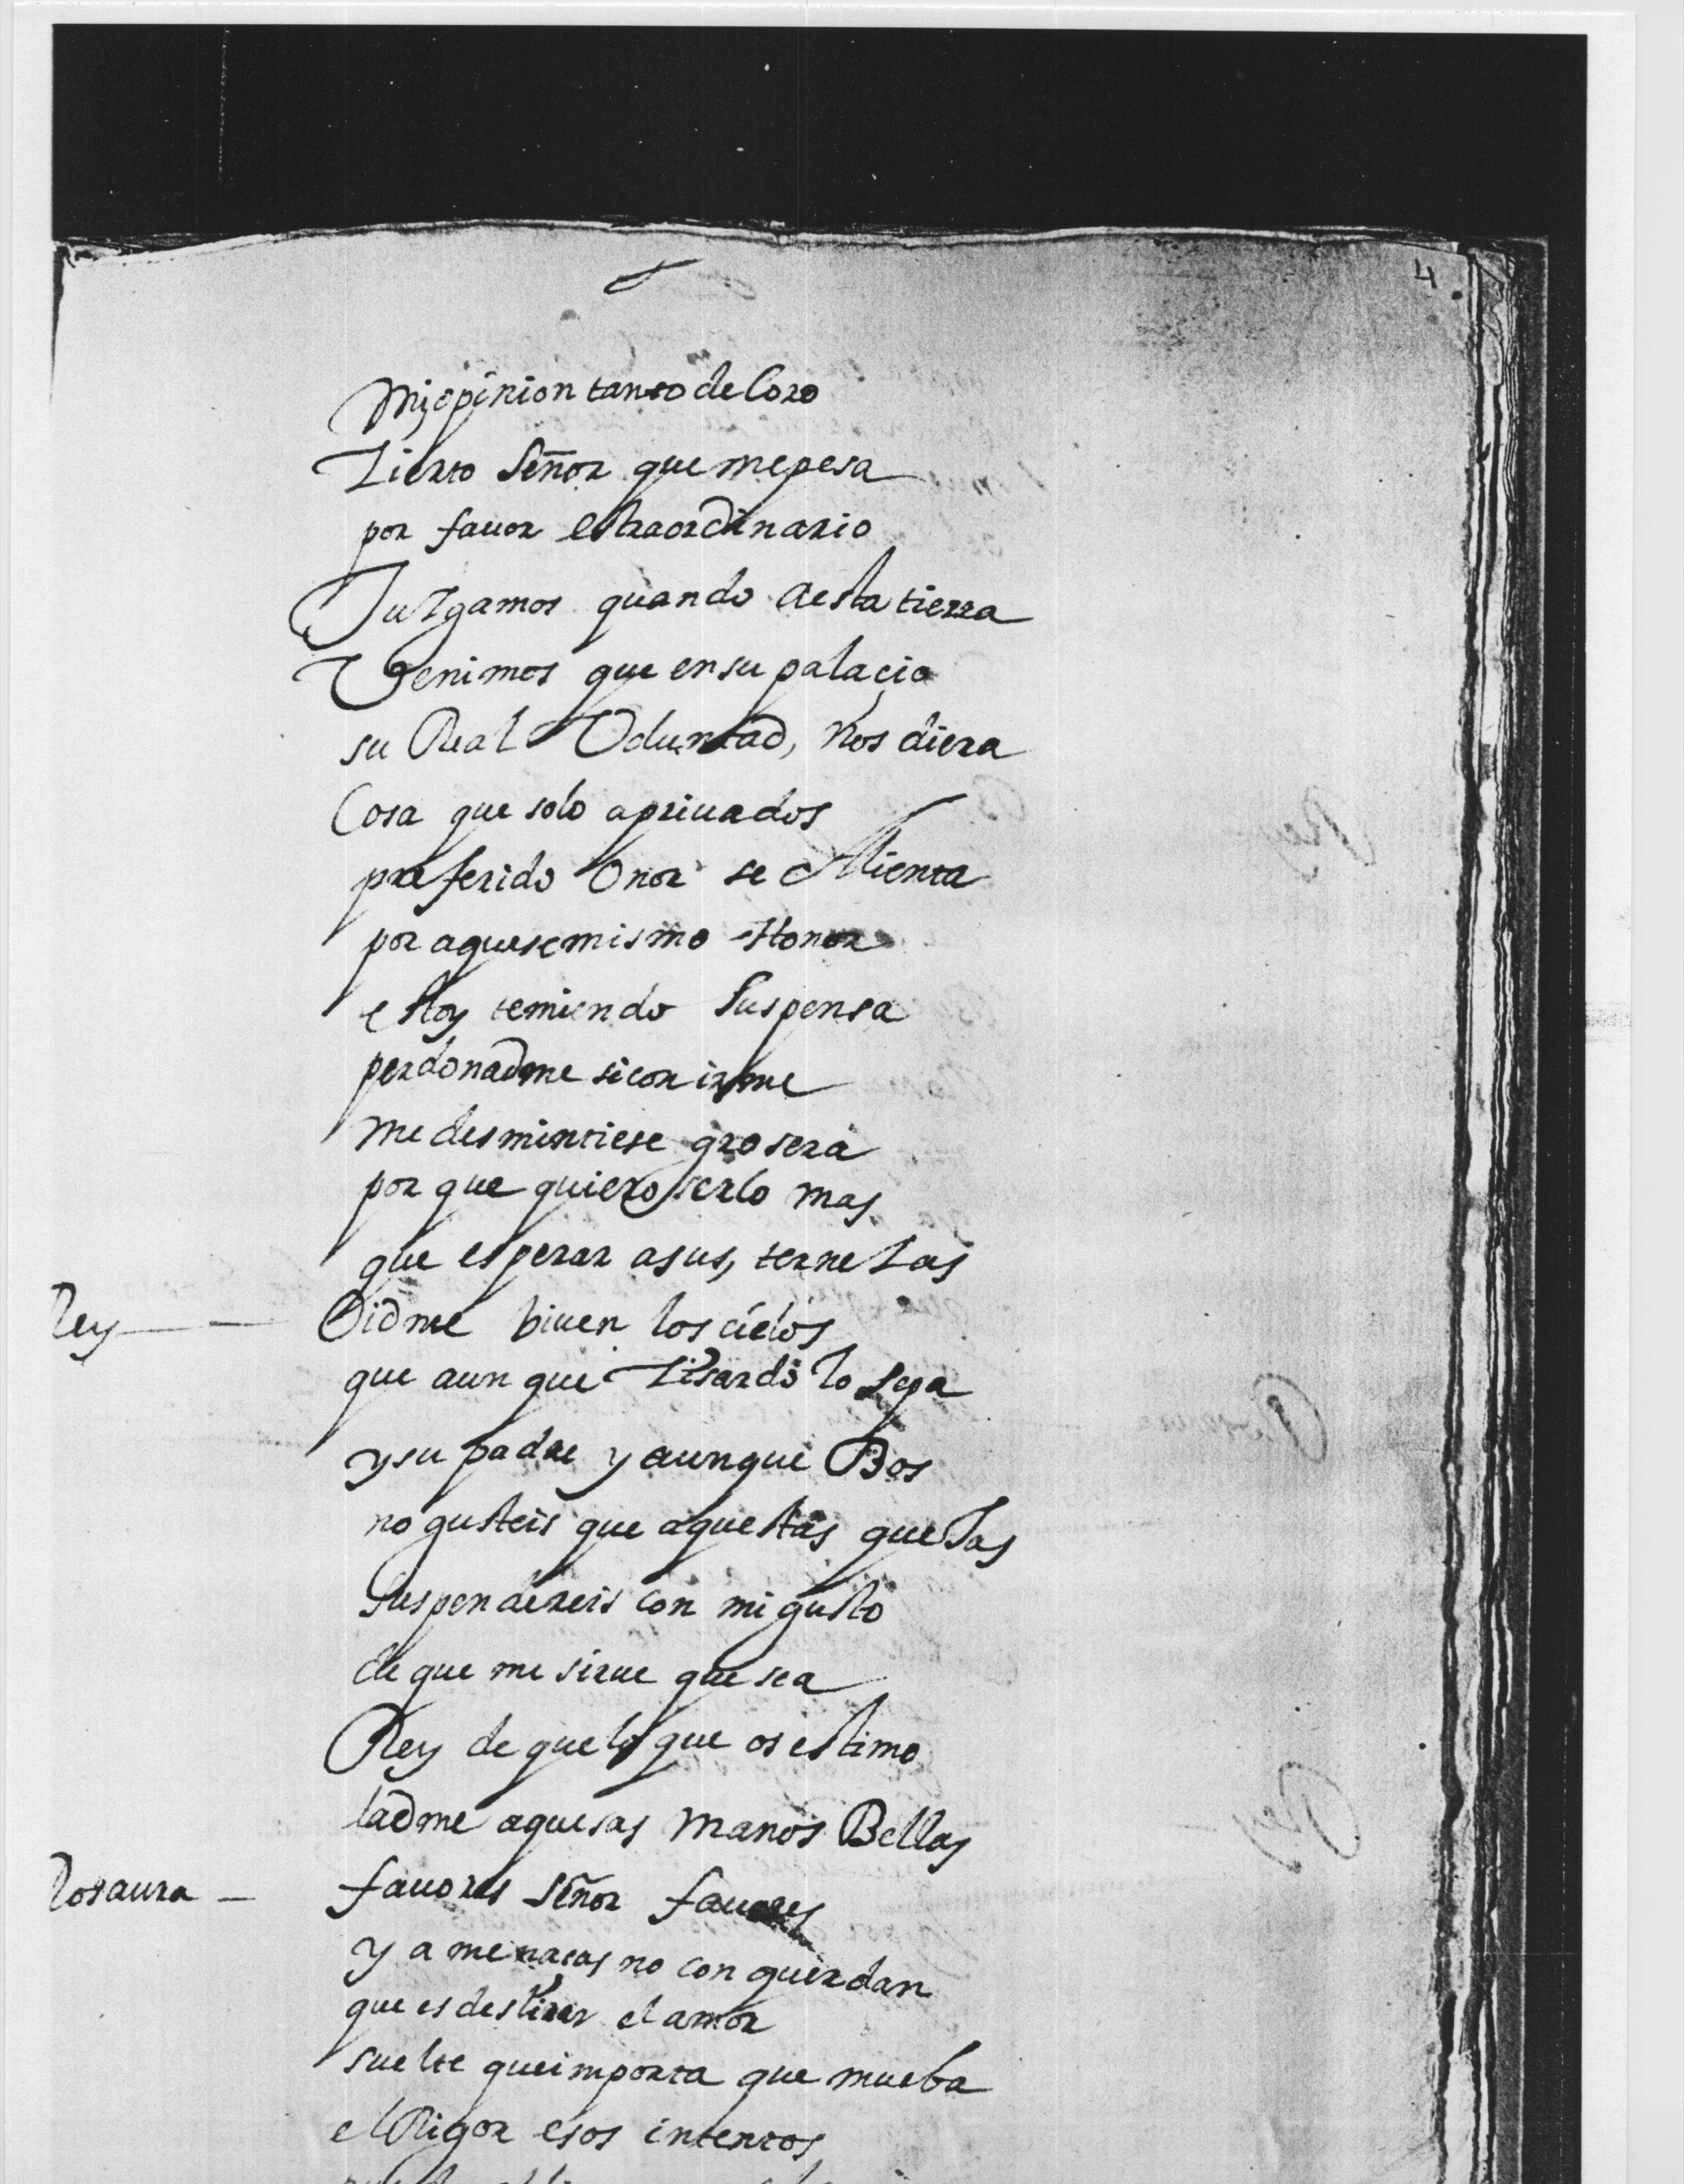 4
Mi opinion tanto decoro
Zierto Señor que me pesa
por fauor estraordinario
Juzgamos quando a esta tierra
Venimos que en su palaçio
su Real Voluntad, nos diera
Cosa que solo a priuados
preferido Onor se Alienta
por aquese mismo Honor
estoy temiendo Suspensa
perdonadme si con irme
me desmintiese grosera
por que quiero serlo mas
que esperar a sus, ternezas
Rey — Oidme biuen los cielos
que aun que Lisardo lo sepa
y su padre y aunque Bos
no gusteis que aquestas quezas
Suspendereis con mi gusto
de que me sirue que sea
Rey de que lo que os estimo
dadme aquesas manos Bellas
Rosaura — fauores Señor fauores
y amenaças no con quierdan
que es des el amor
suelte que importa que mueba
el Rigor esos intentos